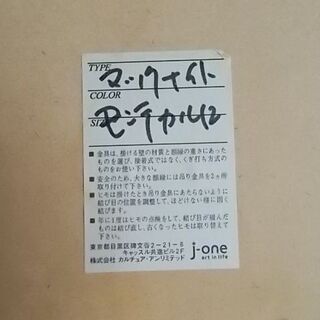 TYPE
マックナイト
COLOR
SIZE
モンテカルロ
■金具は、掛ける壁の材質と額縁の重さにあった
ものを選び、接着式ではなく、くぎ打ち方式の
ものをお使い下さい。
■安全のため、大きな額縁には吊り金具を2ヵ所
取り付けて下さい。
■ヒモは掛けたとき吊り金具にあたらないように
結び目の位置を調整して、ほどけない様に固く
結びます。
■年に1度はヒモの点検をして、結び目が緩んだ
ものは結び直し、古くなったヒモは取り替えて下
さい。
東京都目黒区碑文谷2−21−6
キャッスル共進ビル2F
株式会社 カルチュア・アンリミテッド
j-one
art in life